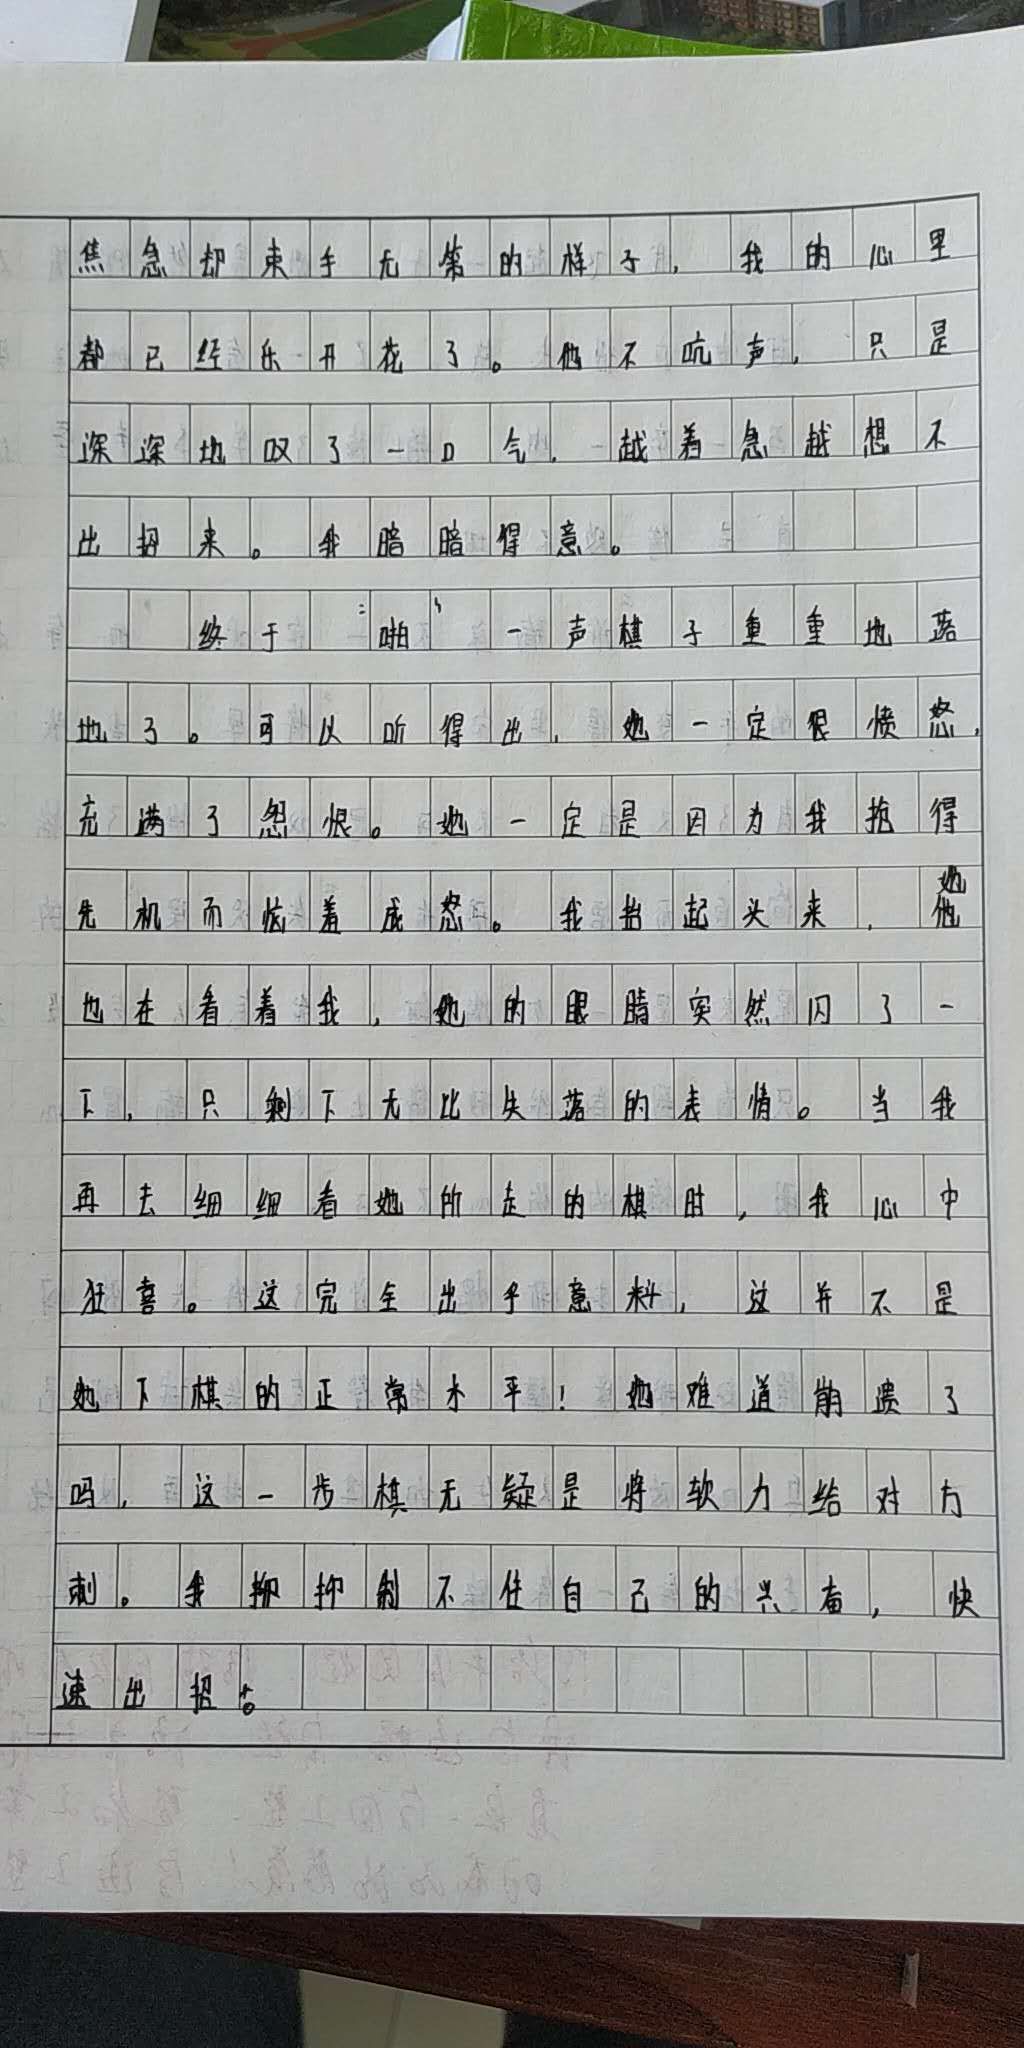 焦急却束手无策的样子，我的心里
都已经乐开花了。他不吭声，只是
深深地叹了一口气，越着急越想不
出招来。我暗暗得意。
终于“啪”一声棋子重重地落
地了。可以听得出，她一定很愤怒，
充满了怨恨。她一定是因为我抢得
先机而恼羞成怒。我抬起头来，她
也在看着我，她的眼睛突然闪了一
下，只剩下无比失落的表情。当我
再去细细看她所走的棋时，我心中
狂喜。这完全出乎意料，这并不是
她下棋的正常水平！她难道崩溃了
吗，这一步棋无疑是将软力给对方
刺。我抑制不住自己的兴奋，快
速出招。